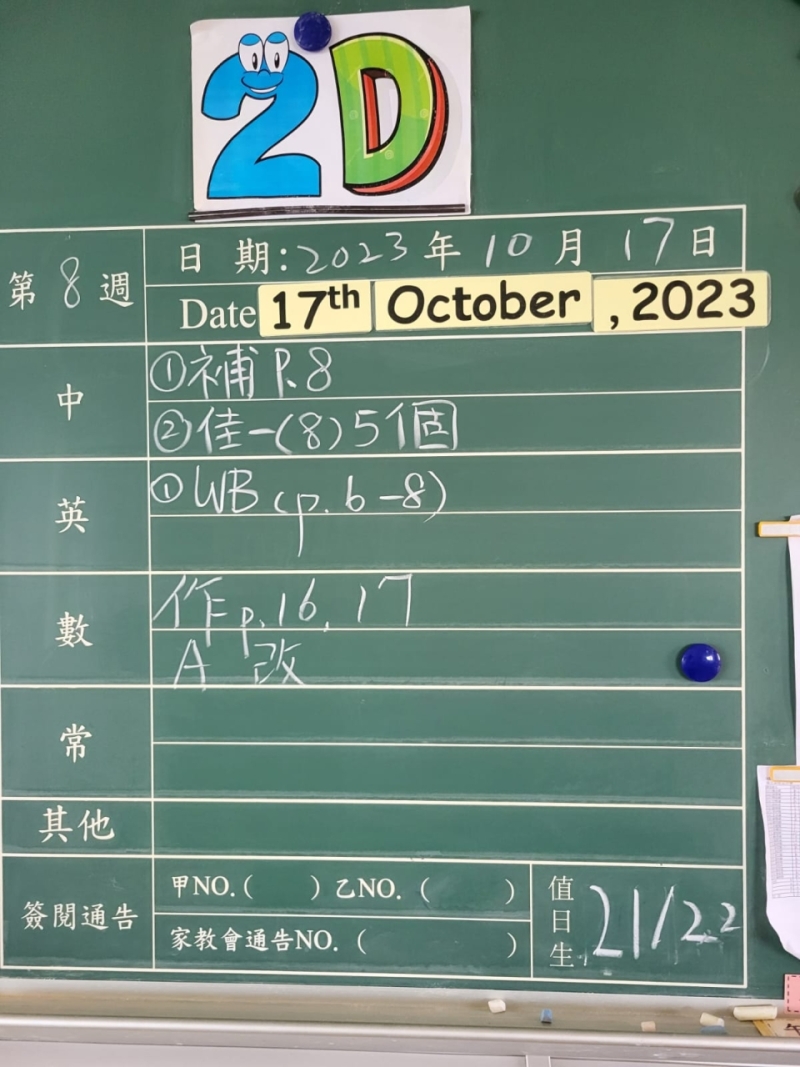 2D
第 8 週
日 期: 2023 年 10 月 17 日
Date 17th October , 2023
中
①補 P.8
②佳一(8)5個
英
①WB (p. 6-8)
數
作 p.16, 17
A 改
常
其他
簽閱通告
甲NO. ( ) 乙NO. ( )
家教會通告NO. ( )
值日生
21/22